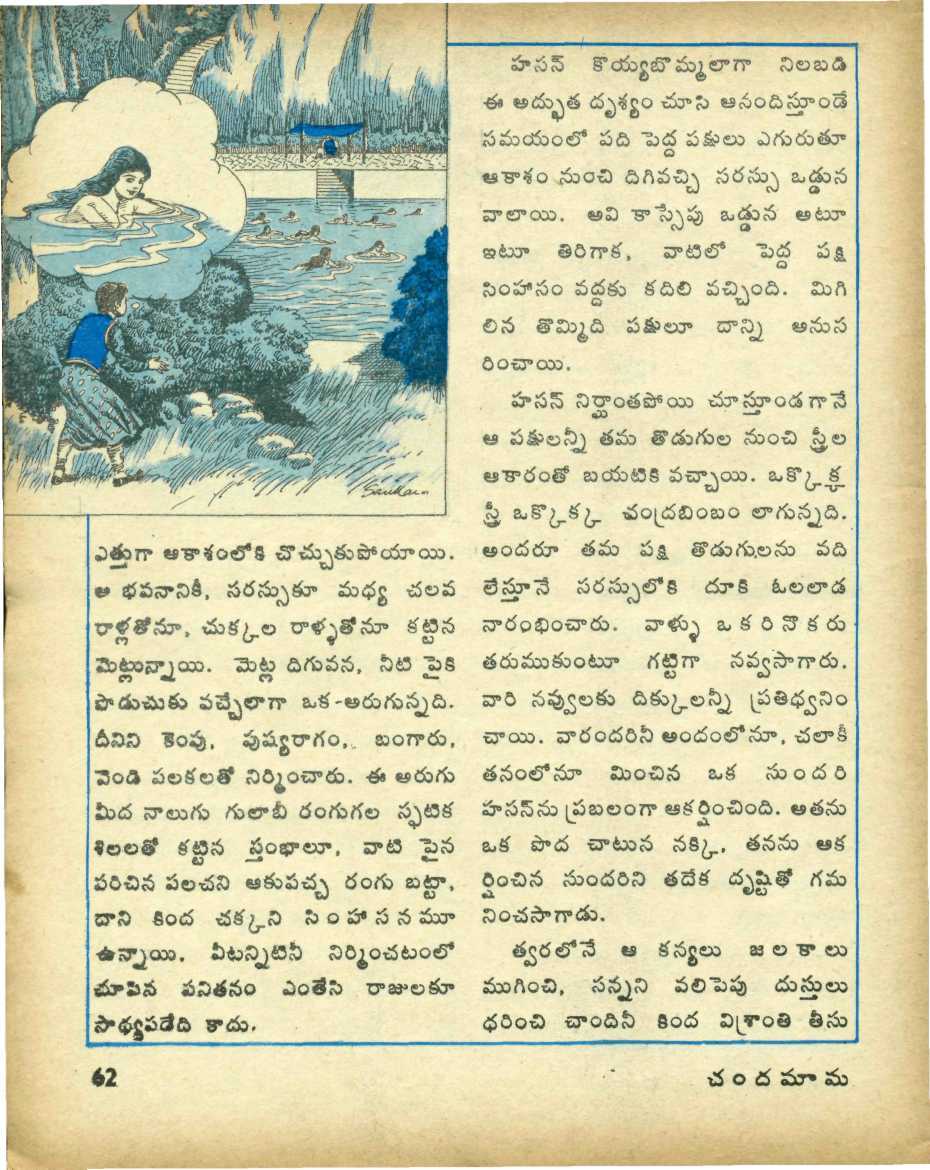 Sankar
ఎత్తుగా ఆకాశంలోకి చొచ్చుకుపోయాయి.
ఆ భవనానికీ, సరస్సుకూ మధ్య చలవ
రాళ్లతోనూ, చుక్కల రాళ్ళతోనూ కట్టిన
మెట్లున్నాయి. మెట్ల దిగువన, నీటి పైకి
పొడుచుకు వచ్చేలాగా ఒక-అరుగున్నది.
దీనిని కెంపు, పుష్యరాగం, బంగారు,
వెండి పలకలతో నిర్మించారు. ఈ అరుగు
మీద నాలుగు గులాబీ రంగుగల స్ఫటిక
శిలలతో కట్టిన స్తంభాలూ, వాటి పైన
పరిచిన పలచని ఆకుపచ్చ రంగు బట్టా,
దాని కింద చక్కని సింహాసనమూ
ఉన్నాయి. వీటన్నిటినీ నిర్మించటంలో
చూపిన పనితనం ఎంతేసి రాజులకూ
సాధ్యపడేది కాదు.
హసన్ కొయ్యబొమ్మలాగా నిలబడి
ఈ అద్భుత దృశ్యం చూసి ఆనందిస్తూండే
సమయంలో పది పెద్ద పక్షులు ఎగురుతూ
ఆకాశం నుంచి దిగివచ్చి సరస్సు ఒడ్డున
వాలాయి. అవి కాస్సేపు ఒడ్డున అటూ
ఇటూ తిరిగాక, వాటిలో పెద్ద పక్షి
సింహాసం వద్దకు కదిలి వచ్చింది. మిగి
లిన తొమ్మిది పక్షులూ దాన్ని అనుస
రించాయి.
హసన్ నిర్ఘాంతపోయి చూస్తూండగానే
ఆ పక్షులన్నీ తమ తొడుగుల నుంచి స్త్రీల
ఆకారంతో బయటికి వచ్చాయి. ఒక్కొక్క
స్త్రీ ఒక్కొక్క చంద్రబింబం లాగున్నది.
అందరూ తమ పక్షి తొడుగులను వది
లేస్తూనే సరస్సులోకి దూకి ఓలలాడ
నారంభించారు. వాళ్ళు ఒకరినొకరు
తరుముకుంటూ గట్టిగా నవ్వసాగారు.
వారి నవ్వులకు దిక్కులన్నీ ప్రతిధ్వనిం
చాయి. వారందరినీ అందంలోనూ, చలాకీ
తనంలోనూ మించిన ఒక సుందరి
హసన్‌ను ప్రబలంగా ఆకర్షించింది. అతను
ఒక పొద చాటున నక్కి, తనను ఆక
ర్షించిన సుందరిని తదేక దృష్టితో గమ
నించసాగాడు.
త్వరలోనే ఆ కన్యలు జలకాలు
ముగించి, సన్నని వలిపెపు దుస్తులు
ధరించి చాందినీ కింద విశ్రాంతి తీసు
62
చందమామ